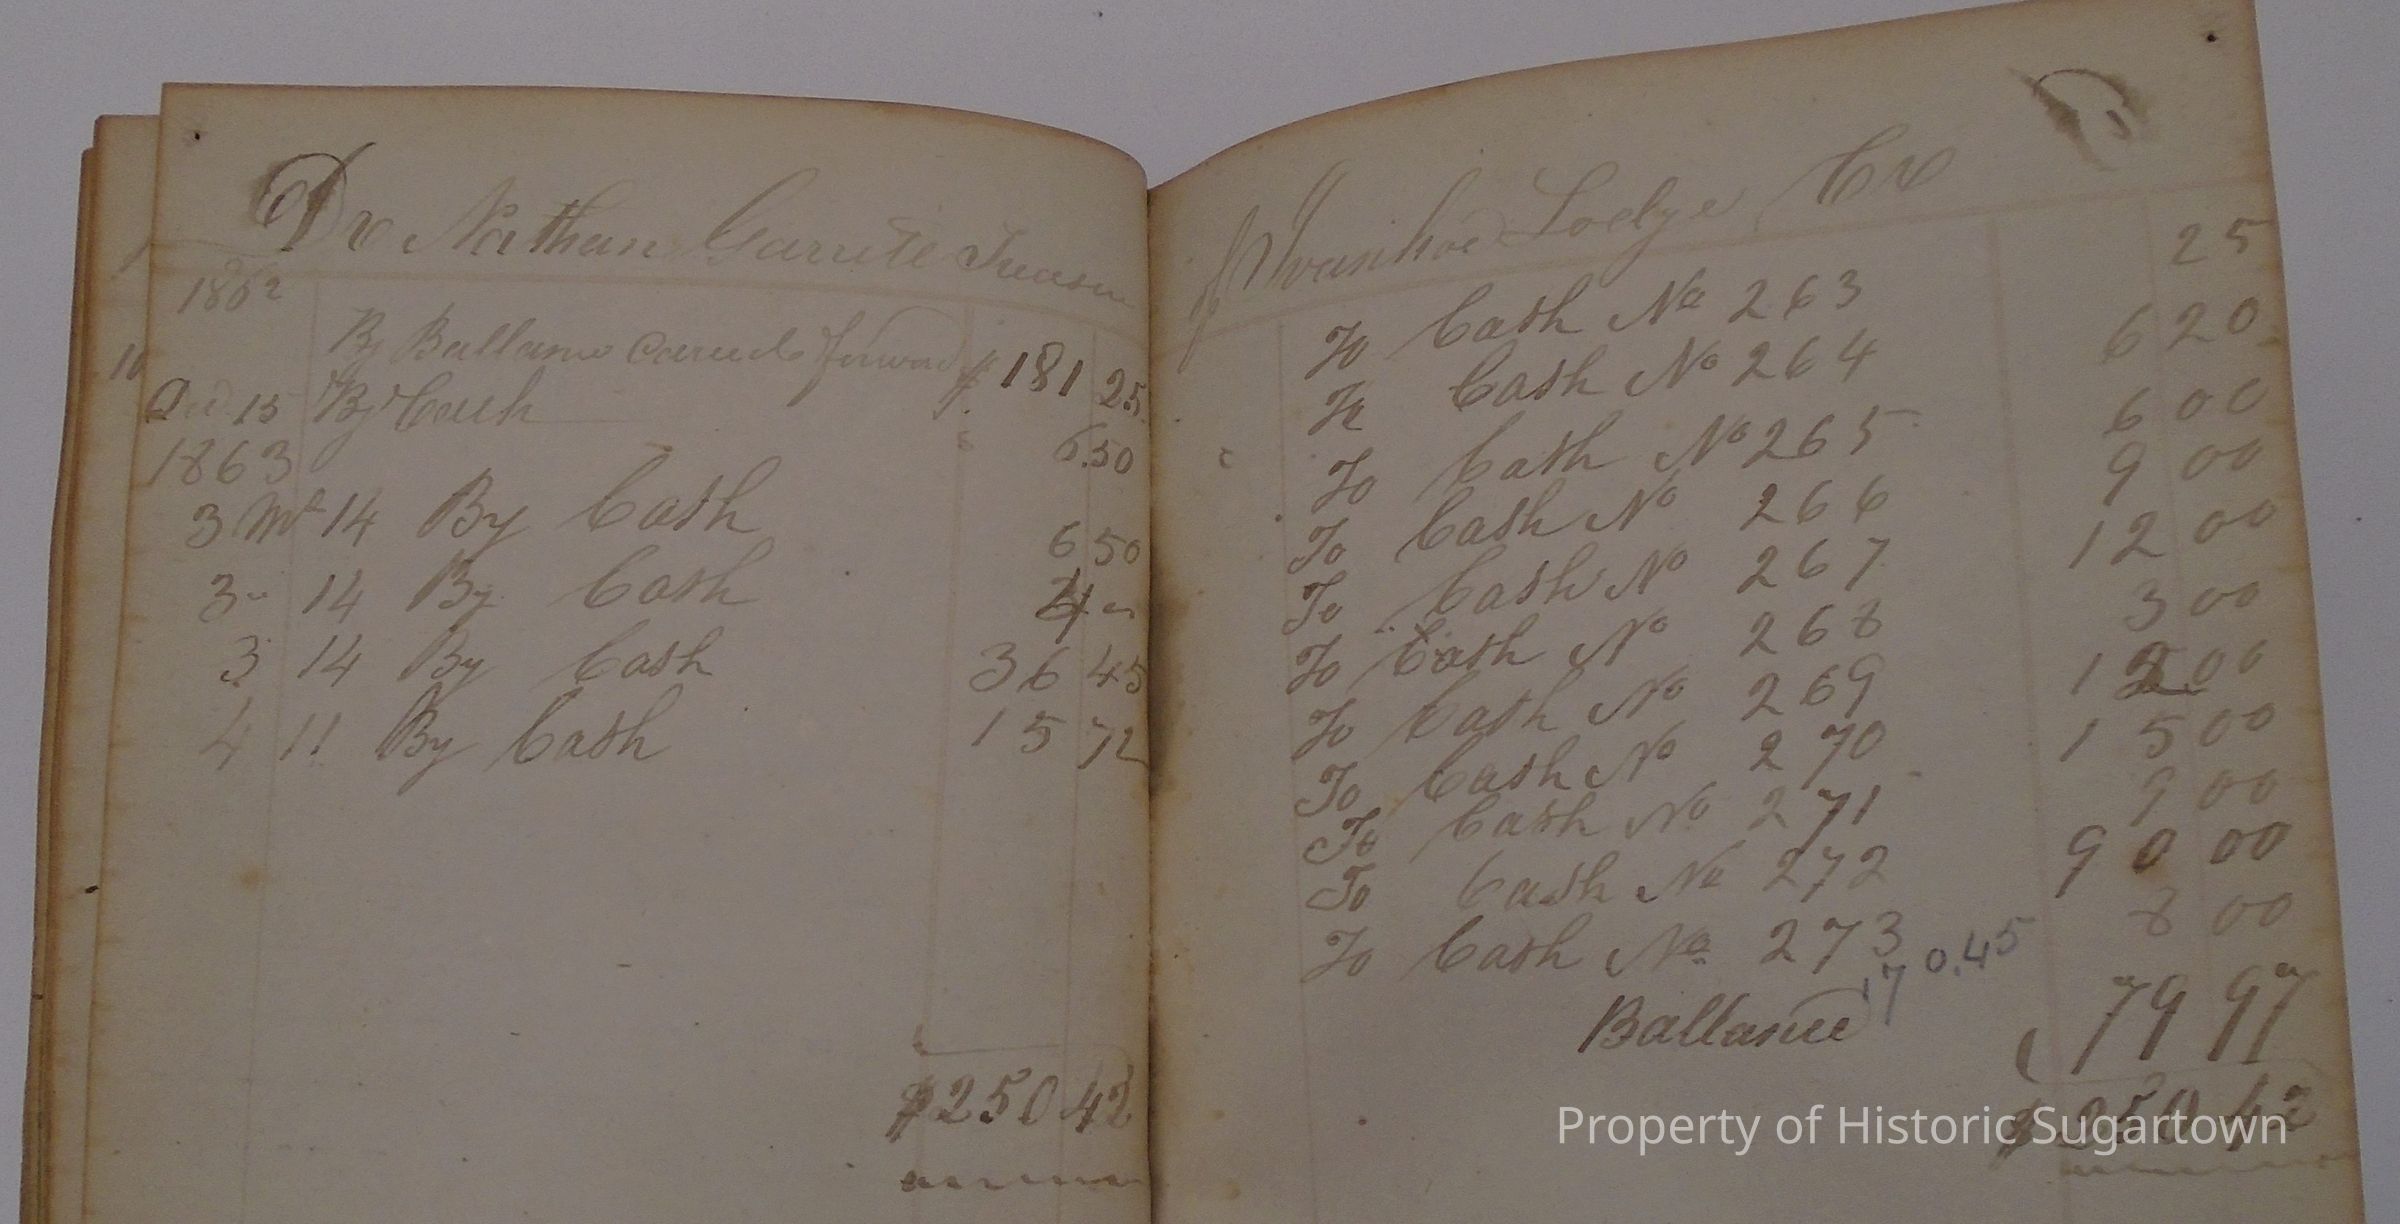 Dr Nathan Garrete Treasu
1862
By Ballance carried forward $ 181 25
Dec 15 By Cash 6.50
1863
3 Mo 14 By Cash 6 50
3 " 14 By Cash 4 "
3 14 By Cash 36 45
4 11 By Cash 15 72
$250 42
Ivanhoe Lodge Cr
To Cash No 263 25
To Cash No 264 6 20
To Cash No 265 6 00
To Cash No 266 9 00
To Cash No 267 12 00
To Cash No 268 3 00
To Cash No 269 12 00
To Cash No 270 15 00
To Cash No 271 9 00
To Cash No 272 90 00
To Cash No 273 8 00
170.45
Ballance 79 97
$ 250 42
Property of Historic Sugartown